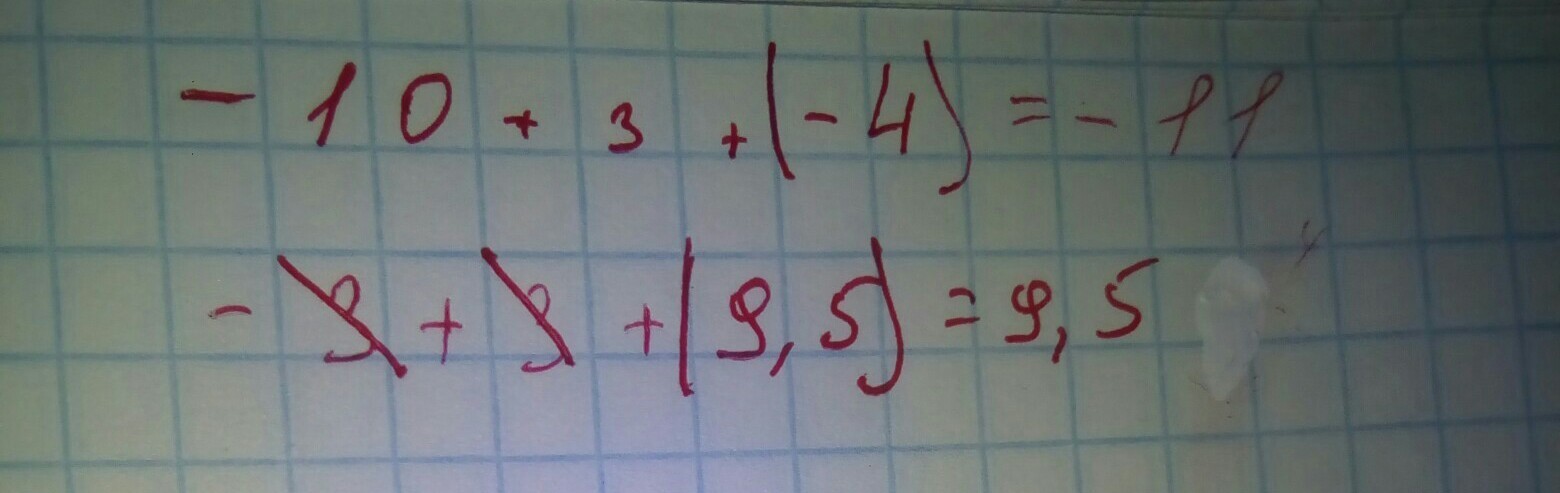 - 10 + 3 + (-4) = - 11
- 9 + 9 + (9,5) = 9,5